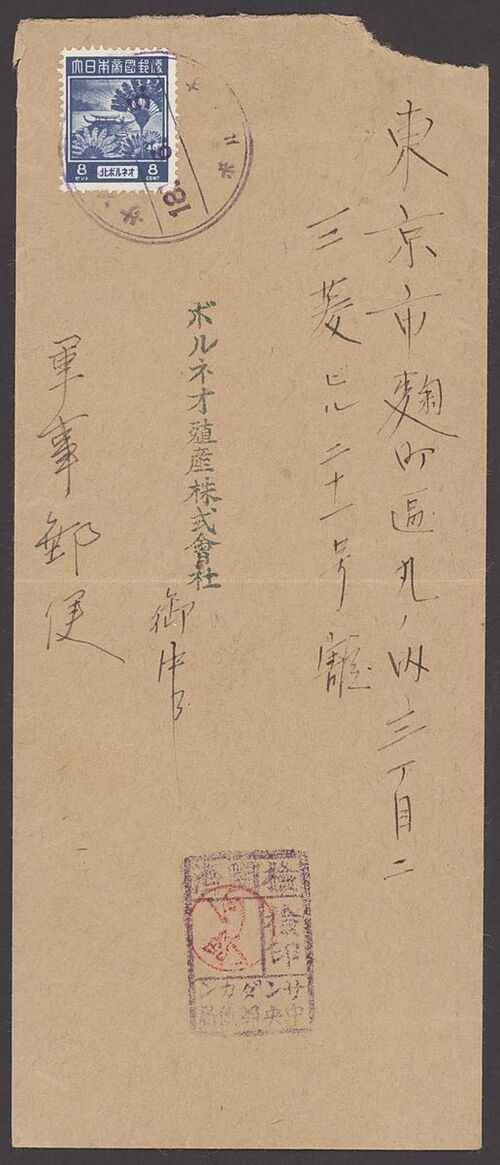 東京市麹町區丸ノ内三丁目二
三菱ビル二十一号館
ボルネオ殖産株式會社
御中
軍事郵便
大日本帝國郵便
8 北ボルネオ 8
セント CENT
18.
検閲済
検印
サンダカン
中央郵便局